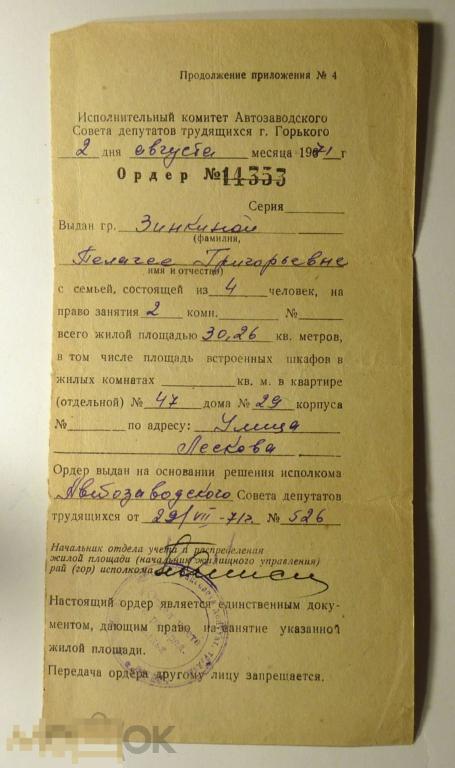 Продолжение приложения № 4
Исполнительный комитет Автозаводского
Совета депутатов трудящихся г. Горького
2 дня августа месяца 1971 г
Ордер № 14353
Серия
Выдан гр. Зинкиной
(фамилия,
Пелагее Григорьевне
имя и отчество)
с семьей, состоящей из 4 человек, на
право занятия 2 комн. №
всего жилой площадью 30,26 кв. метров,
в том числе площадь встроенных шкафов в
жилых комнатах кв. м. в квартире
(отдельной) № 47 дома № 29 корпуса
№ по адресу: Улица
Лескова
Ордер выдан на основании решения исполкома
Автозаводского Совета депутатов
трудящихся от 29/VII-71г. № 526
Начальник отдела учета и распределения
жилой площади (начальник жилищного управления)
рай (гор) исполкома
Настоящий ордер является единственным доку-
ментом, дающим право на занятие указанной
жилой площади.
Передача ордера другому лицу запрещается.
МЕШОК